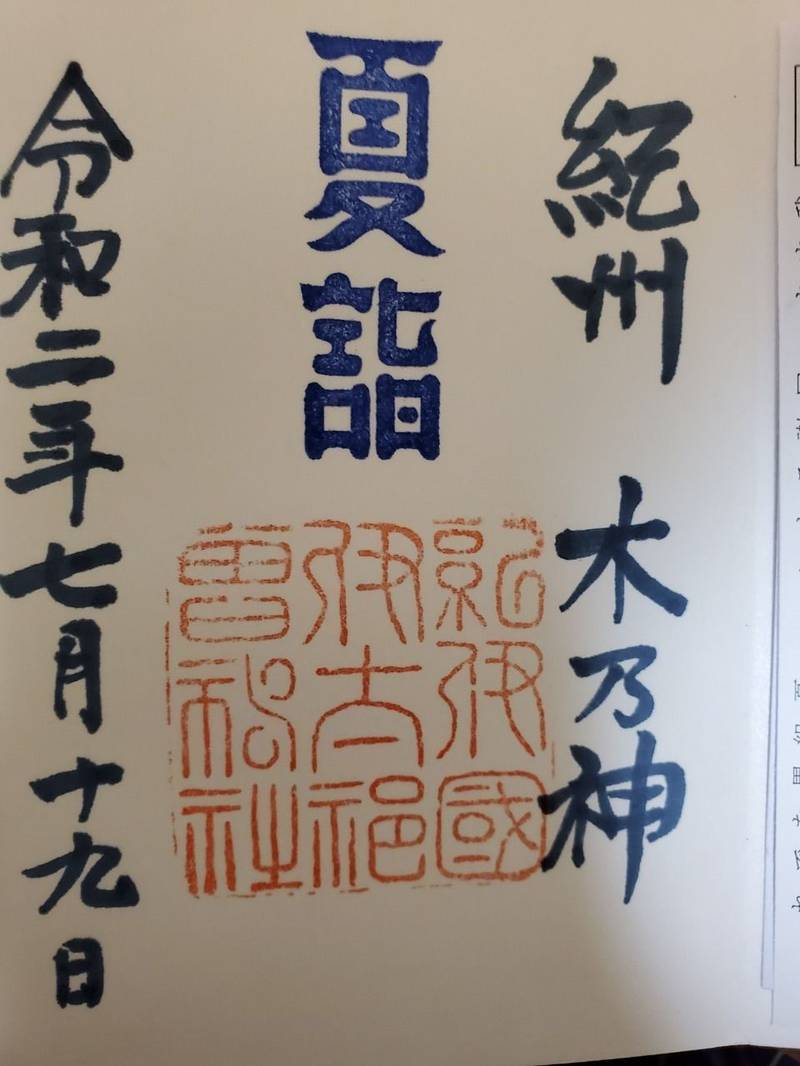 紀州 木乃神
夏詣
紀伊國
伊太祁
曾神社
令和二年七月十九日